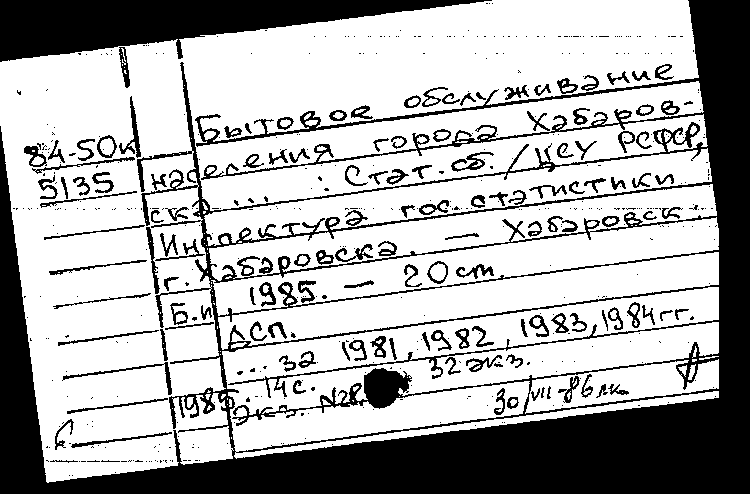 Бытовое обслуживание
84-50к
населения города Хабаров-
5135
ска ... : Стат. сб. / ЦСУ РСФСР,
Инспектура гос. статистики
г. Хабаровска. — Хабаровск :
Б.и., 1985. — 20 см.
ДСП.
... за 1981, 1982, 1983, 1984 гг.
1985. 14 с. 32 экз.
Экз. №28
30/VII-86